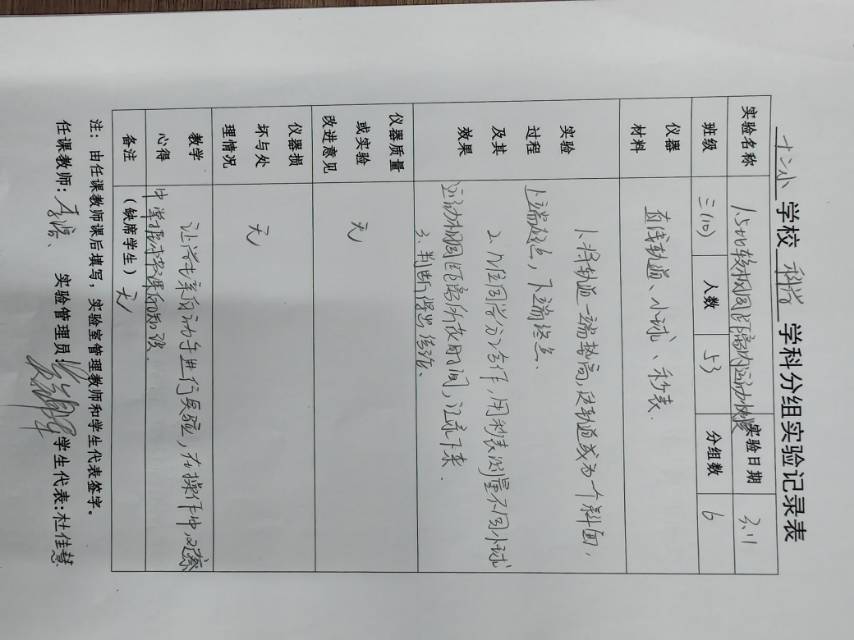 十二小 学校 科学 学科分组实验记录表
实验名称 1.5比较相同距离内运动快慢 实验日期 3.11
班级 三(10) 人数 53 分组数 6
仪器材料 直线轨道、小球、秒表.
实验过程及其效果
1.将轨道一端垫高,使轨道成为一个斜面,
上端起点,下端终点.
2.几位同学分工合作,用秒表测量不同小球
运动相同距离所花时间,记录下来.
3.判断得出结论.
仪器质量或实验改进意见 无
仪器损坏与处理情况 无
教学心得 让学生亲自动手进行实验,在操作中观察
中掌握本堂课的知识.
备注 (缺席学生) 无
注:由任课教师课后填写,实验室管理教师和学生代表签字。
任课教师: 实验管理员: 学生代表:杜佳慧